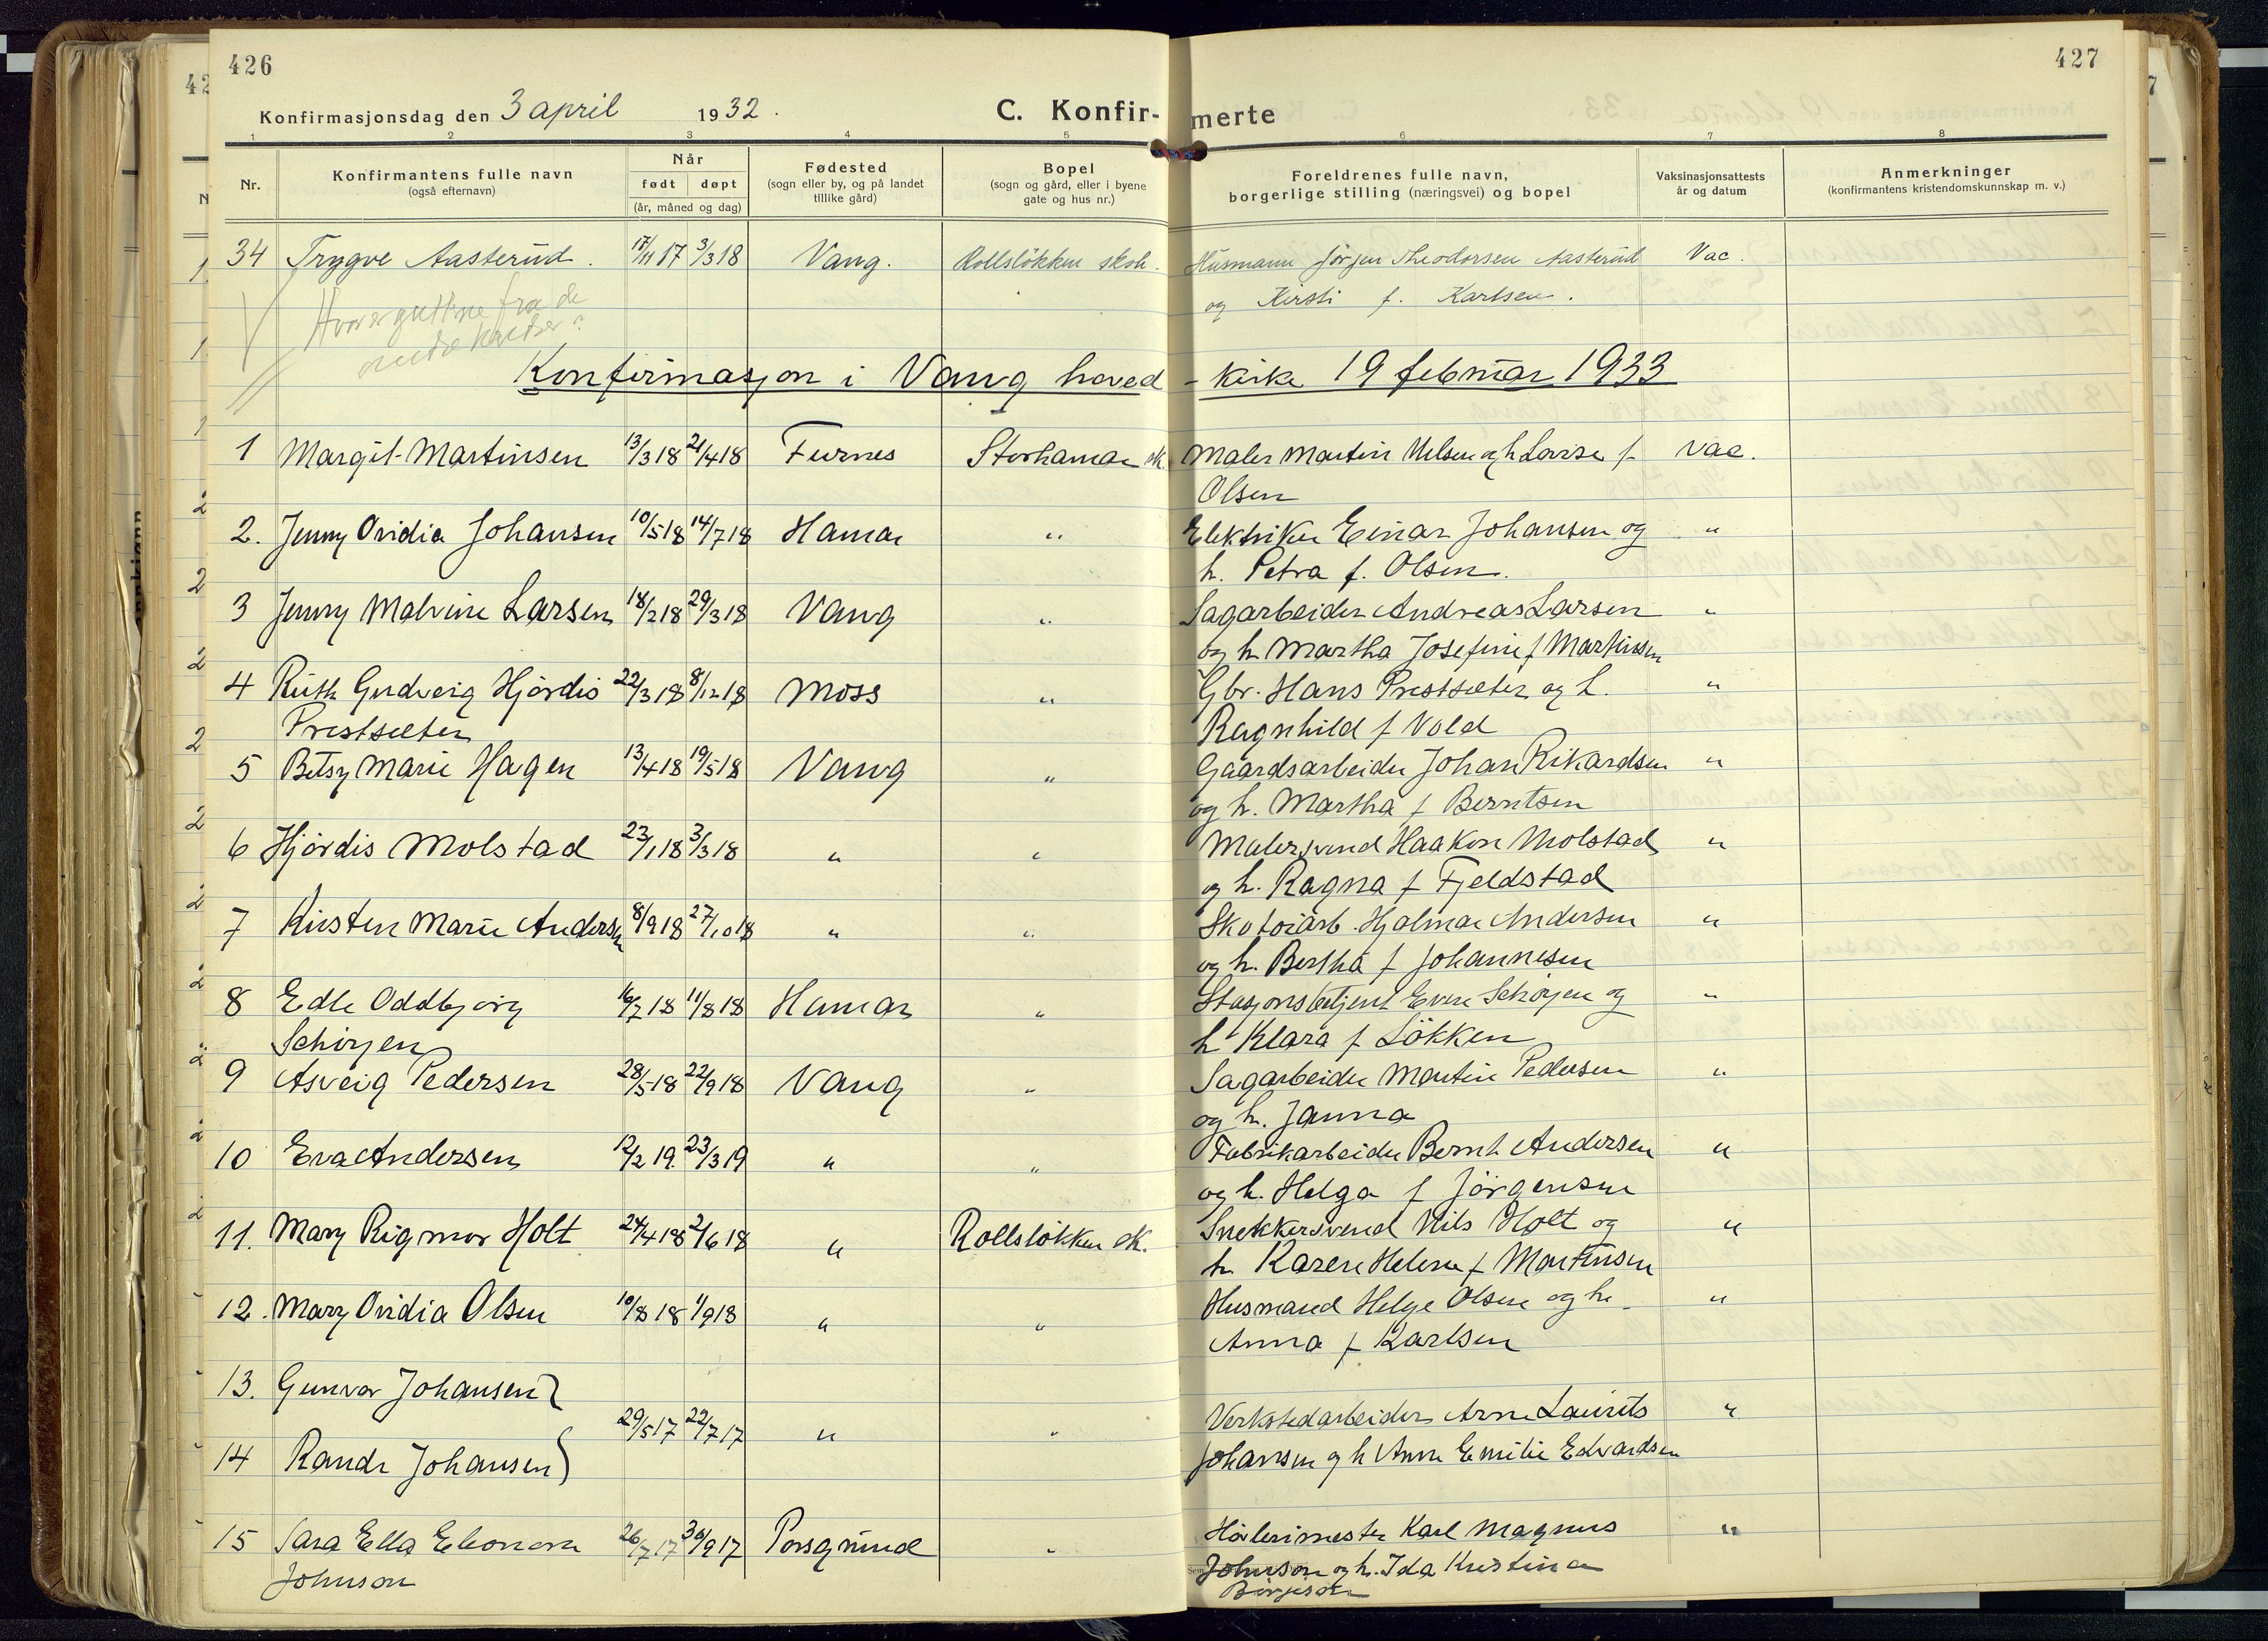 426
Konfirmasjonsdag den 3 april 1932.
C. Konfir-
merte
427
1 2 3 4 5 6 7 8
Nr. Konfirmantens fulle navn (også efternavn) Når født døpt (år, måned og dag) Fødested (sogn eller by, og på landet tillike gård) Bopel (sogn og gård, eller i byene gate og hus nr.) Foreldrenes fulle navn, borgerlige stilling (næringsvei) og bopel Vaksinasjonsattests år og datum Anmerkninger (konfirmantens kristendomskunnskap m. v.)
34 Trygve Aasterud. 17/11 17 3/3 18 Vang. Rollsløkken skole. Husmann Jørgen Theodorsen Aasterud Vac.
og Kirsti f. Karlsen.
Hvor er guttene fra de
Konfirmasjon i Vang hoved-kirke 19 februar 1933
1 Margit Martinsen 13/3 18 21/4 18 Furnes Storhamar sk. Maler Martin Nelsen og h Lovise f Vac.
Olsen
2. Jenny Ovidia Johansen 10/5 18 14/7 18 Hamar " Elektriker Einar Johansen og "
h. Petra f. Olsen.
3 Jenny Malvine Larsen 18/2 18 29/3 18 Vang " Sagarbeider Andreas Larsen "
og h Martha Josefine f Martinsen
4 Ruth Gudveig Hjørdis 22/3 18 8/12 18 Moss " Gbr. Hans Prestsæter og h. "
Prestsæter Ragnhild f Vold
5 Betsy Marie Hagen 13/4 18 19/5 18 Vang " Gaardsarbeider Johan Rikardsen "
og h. Martha f Berntsen
6 Hjördis Molstad 23/1 18 3/3 18 " " Malersvend Haakon Molstad "
og h. Ragna f Fjeldstad
7 Kirsten Marie Andersen 8/9 18 27/10 18 " " Skotøiarb. Hjalmar Andersen "
og h. Bertha f Johannesen
8 Edle Oddbjørg 16/7 18 11/8 18 Hamar " Stasjonsbetjent Even Schöyen og "
Schöyen h Klara f Løkken
9 Asveig Pedersen 28/5 18 22/9 18 Vang " Sagarbeider Martin Pedersen "
og h. Janna
10 Eva Andersen 12/2 19. 23/3 19 " " Fabrikarbeider Bernt Andersen "
og h. Helga f Jörgensen
11. Mary Rigmor Holt 24/4 18 2/6 18 " Rollsløkken sk. Snekkersvend Nils Holt og "
h. Karen Helene f Martinsen
12. Mary Ovidia Olsen 10/8 18 1/9 18 " " Husmand Helge Olsen og h. "
Anna f Karlsen
13. Gunvor Johansen
29/5 17 22/7 17 " " Verkstedarbeider Arne Laurits "
14 Randi Johansen Johansen og h Anna Emilie Edvardsen
15 Sara Ella Eleonora 26/7 17 30/9 17 Porsgrund " Høvlerimester Karl Magnus "
Johnson Johnson og h. Ida Kristina
Börjeson